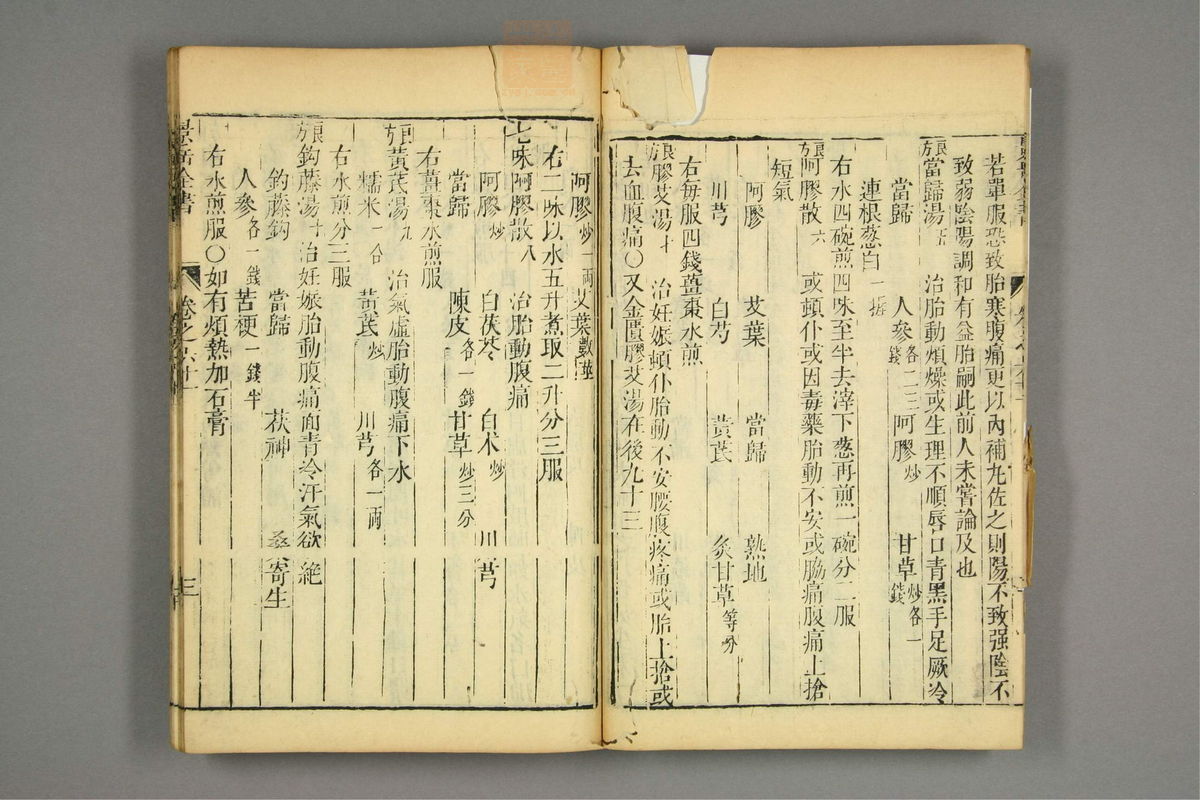 若單服恐致胎寒腹痛更以內補丸佐之則陽不致强陰不
致弱陰陽調和有益胎嗣此前人未嘗論及也
良方當歸湯五　治胎動煩燥或生理不順唇口青黑手足厥冷
當歸　人參各二三錢　阿膠炒　甘草炒各一錢
連根蔥白一握
右水四碗煎四味至半去滓下蔥再煎一碗分二服
良方阿膠散六　或頓仆或因毒藥胎動不安或脇痛腹痛上搶
短氣
阿膠　艾葉　當歸　熟地
川芎　白芍　黃芪　炙甘草等分
右每服四錢薑棗水煎
良方膠艾湯十　治妊娠頓仆胎動不安腰腹疼痛或胎上搶或
去血腹痛〇又金匱膠艾湯在後九十三
阿膠炒一兩　艾葉數莖
右二味以水五升煮取二升分三服
七味阿膠散八　治胎動腹痛
阿膠炒　白茯苓　白朮炒　川芎
當歸　陳皮各一錢　甘草炒三分
右薑棗水煎服
良方黃芪湯九　治氣虛胎動腹痛下水
糯米一合　黃芪炒　川芎各一兩
右水煎分三服
良方鈎藤湯十　治妊娠胎動腹痛面青冷汗氣欲絕
鈎藤鈎　當歸　茯神　桑寄生
人參各一錢　苦梗一錢半
右水煎服〇如有煩熱加石膏
景岳全書　卷之六十一　三